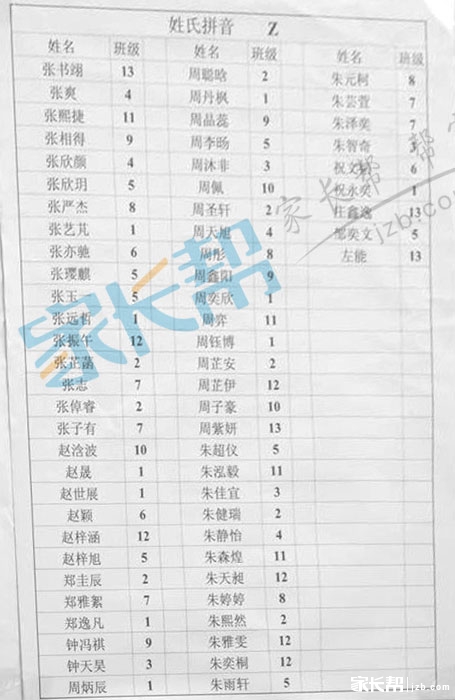 姓氏拼音 Z
姓名 班级 姓名 班级 姓名 班级
张书翊 13 周聪晗 2 朱元柯 8
张爽 4 周丹枫 1 朱芸萱 7
张熙捷 11 周品蕊 9 朱泽奕 7
张相得 9 周李旸 5 朱智奇 3
张欣颜 4 周沐非 3 祝文 6
张欣玥 5 周佩 10 祝永奕 1
张严杰 8 周圣轩 2 庄鑫逸 13
张艺芃 1 周天旭 4 邹奕文 5
张亦驰 6 周彤 8 左能 13
张璎麒 5 周鑫阳 9
张玉 5 周奕欣 1
张远哲 1 周弈 11
张振午 12 周钰博 1
张芷菡 2 周芷安 2
张志 7 周芷伊 12
张倬睿 2 周子豪 10
张子有 7 周紫妍 13
赵浛波 10 朱超仪 5
赵晟 1 朱泓毅 11
赵世展 1 朱佳宜 3
赵颖 6 朱健瑞 2
赵梓涵 12 朱静怡 4
赵梓旭 5 朱森煌 11
郑圭辰 2 朱天昶 12
郑雅絮 7 朱婷婷 8
郑逸凡 1 朱熙然 2
钟冯祺 9 朱雅雯 12
钟天昊 3 朱奕桐 12
周炳辰 1 朱雨轩 5
家长帮
家长帮
jzb.com
家长帮
jzb.com